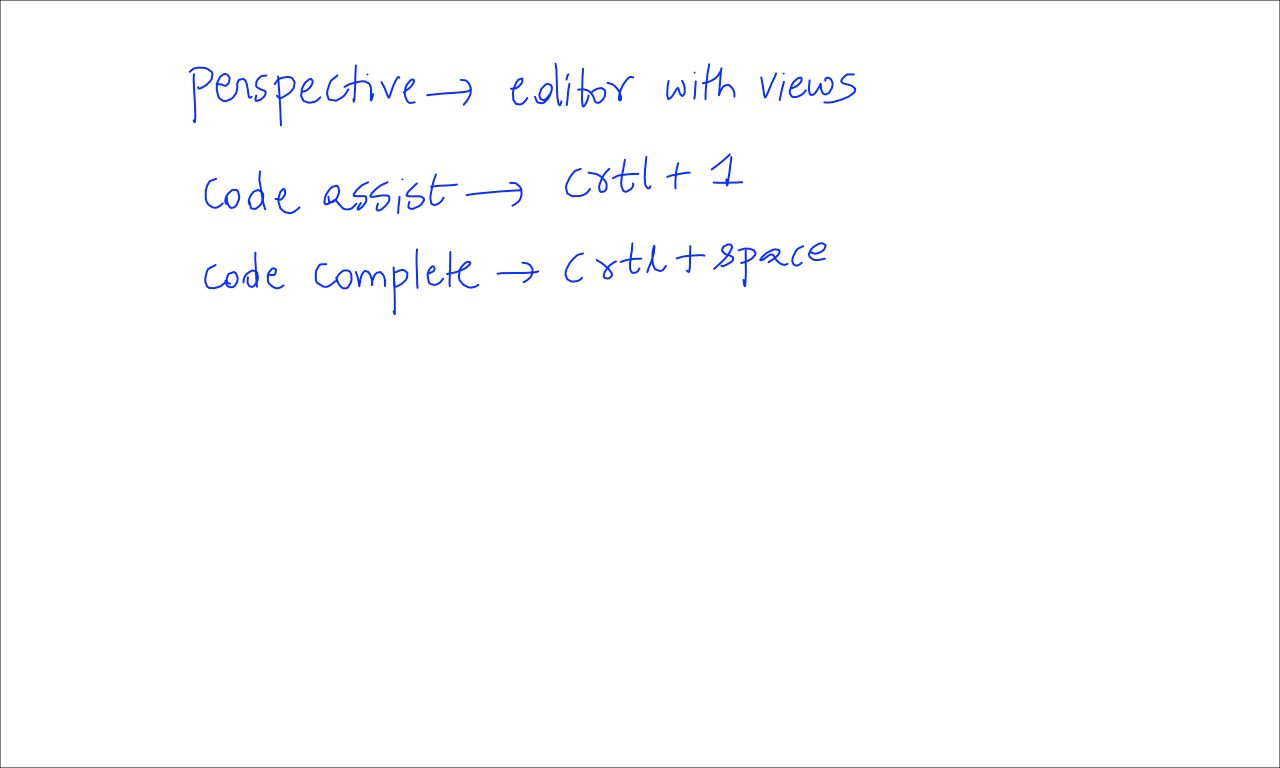 Perspective → editor with views
Code assist → Crtl + 1
Code complete → Crtl + space